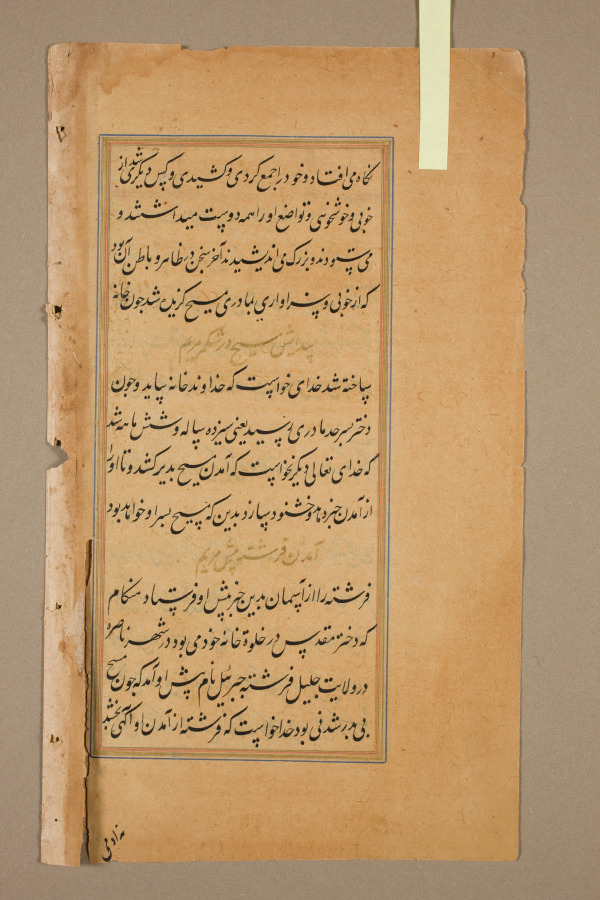 نکاه می افتاد و خود را جمع کردی و کشیدی و کس دیکر شد از
خوبی و خوشخویی و تواضع او را همه دوست میداشتند و
می ستودند و بزرک می اندیشیدند آخر سخن در ظاهر و باطن آن بود
که از خوبی و سزاواری بمادری مسیح کزیده شد چون خانه
پیدایش مسیح در شکم مریم
ساخته شد خدای خواست که خداوند خانه بیاید و چون
دختر بسرحد مادری رسید یعنی سیزده ساله و شش ماهه شد
که خدای تعالی دیکر نخواست که آمدن مسیح بدیر کشد و تا او را
از آمدن خبر دهد و خشنود سازد بدین که مسیح پسر او خواهد بود
آمدن فرشته پیش مریم
فرشته را از آسمان بدین خبر پیش او فرستاد هنکام
که دختر مقدس در خلوة خانه خود می بود در شهر ناصره
در ولایت جلیل فرشته جبرئیل نام پیش او آمد که چون مسیح
بی پدر شدنی بود خدا خواست که فرشته از آمدن او آکهی بخشد